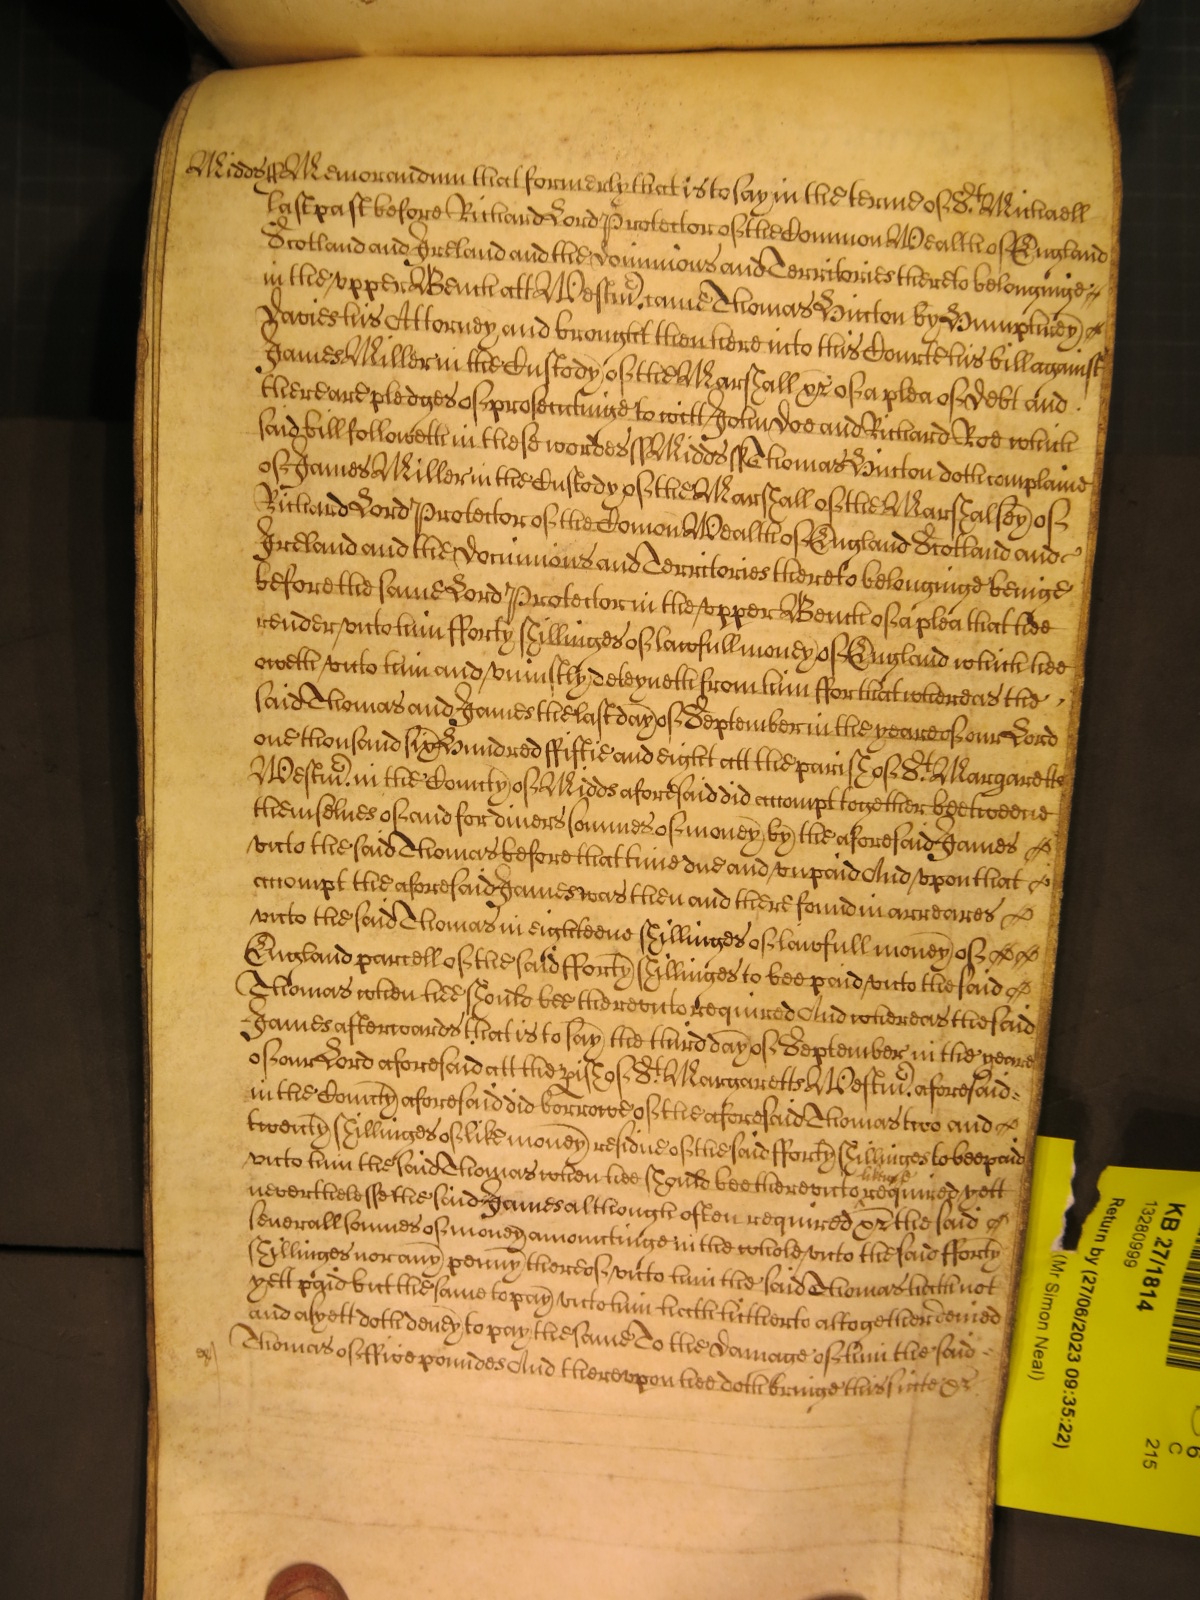 Midds ss Memorandum that formerly that is to say in the terme of St. Michaell
last past before Richard Lord Protector of the Common Wealth of England
Scotland and Ireland and the Dominions and Territories thereto belonginge
in the vpper Bench att Westmr. came Thomas Hinton by Humphrey
Davies his Attorney and brought then here into this Courte his bill against
James Miller in the Custody of the Marshall &c of a plea of Debt and
there are pledges of prosecutinge to witt John Doe and Richard Roe which
said bill followeth in these wordes ss Midds ss Thomas Hinton doth complaine
of James Miller in the Custody of the Marshall of the Marshalsey of
Richard Lord Protector of the Comon Wealth of England Scotland and
Ireland and the Dominions and Territories thereto belonginge beinge
before the same Lord Protector in the vpper Bench of a plea that hee
render vnto him fforty shillinges of lawfull money of England which hee
oweth vnto him and vniustly deteyneth from him ffor that whereas the
said Thomas and James the last day of September in the yeare of our Lord
one thousand six hundred ffiftie and eight att the parish of St. Margaretts
Westmr. in the County of Midds aforesaid did accompt together beetweene
themselues of and for diuers sommes of money by the aforesaid James
vnto the said Thomas before that time due and vnpaid And vpon that
accompt the aforesaid James was then and there found in arreares
vnto the said Thomas in eighteene shillinges of lawfull money of
England parcell of the said fforty shillinges to bee paid vnto the said
Thomas when hee should bee therevnto required And whereas the said
James afterwards that is to say the third day of September in the yeare
of our Lord aforesaid att the pish of St. Margaretts Westmr. aforesaid
in the County aforesaid did borrowe of the aforesaid Thomas two and
twenty shillinges of like money residue of the said fforty shillinges to bee paid
vnto him the said Thomas when hee should bee therevnto likewise required yett
neverthelesse the said James although often required &c the said
seuerall sommes of money amountinge in the whole vnto the said fforty
shillinges nor any penny thereof vnto him the said Thomas hath not
yett paid but the same to pay vnto him hath hitherto altogether denied
and as yett doth deney to pay the same To the damage of him the said
Thomas of ffive poundes And therevpon hee doth bringe this suite &c
KB 27/1814
13280999
Return by (27/06/2023 09:35:22)
(Mr Simon Neal)
6
C
215